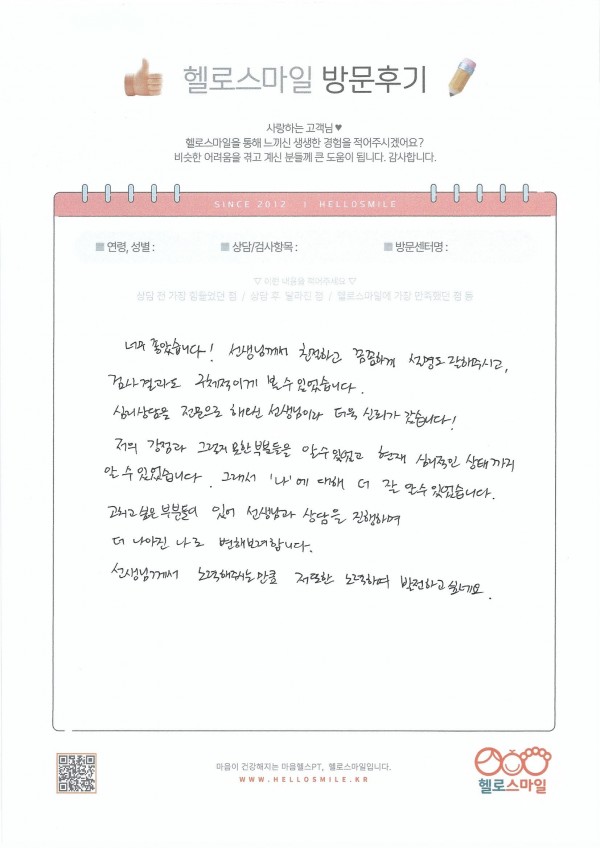 헬로스마일 방문후기
사랑하는 고객님 ♥
헬로스마일을 통해 느끼신 생생한 경험을 적어주시겠어요?
비슷한 어려움을 겪고 계신 분들께 큰 도움이 됩니다. 감사합니다.
SINCE 2012 I HELLOSMILE
■ 연령, 성별 : ■ 상담/검사항목 : ■ 방문센터명 :
▽ 이런 내용을 적어주세요 ▽
상담 전 가장 힘들었던 점 / 상담 후 달라진 점 / 헬로스마일에 가장 만족했던 점 등
너무 좋았습니다! 선생님께서 친절하고 꼼꼼하게 설명도 잘해주시고,
검사결과도 구체적이게 볼 수 있었습니다.
심리상담을 전문으로 해오신 선생님이라 더욱 신뢰가 갔습니다!
저의 강점과 그렇지 못한 부분들을 알 수 있었고 현재 심리적인 상태까지
알 수 있었습니다. 그래서 '나'에 대해 더 잘 알 수 있었습니다.
고치고 싶은 부분들이 있어 선생님과 상담을 진행하며
더 나아진 나로 변해보려합니다.
선생님께서 노력해주시는만큼 저또한 노력하며 발전하고 싶네요.
마음이 건강해지는 마음헬스PT, 헬로스마일입니다.
WWW.HELLOSMILE.KR
헬로스마일